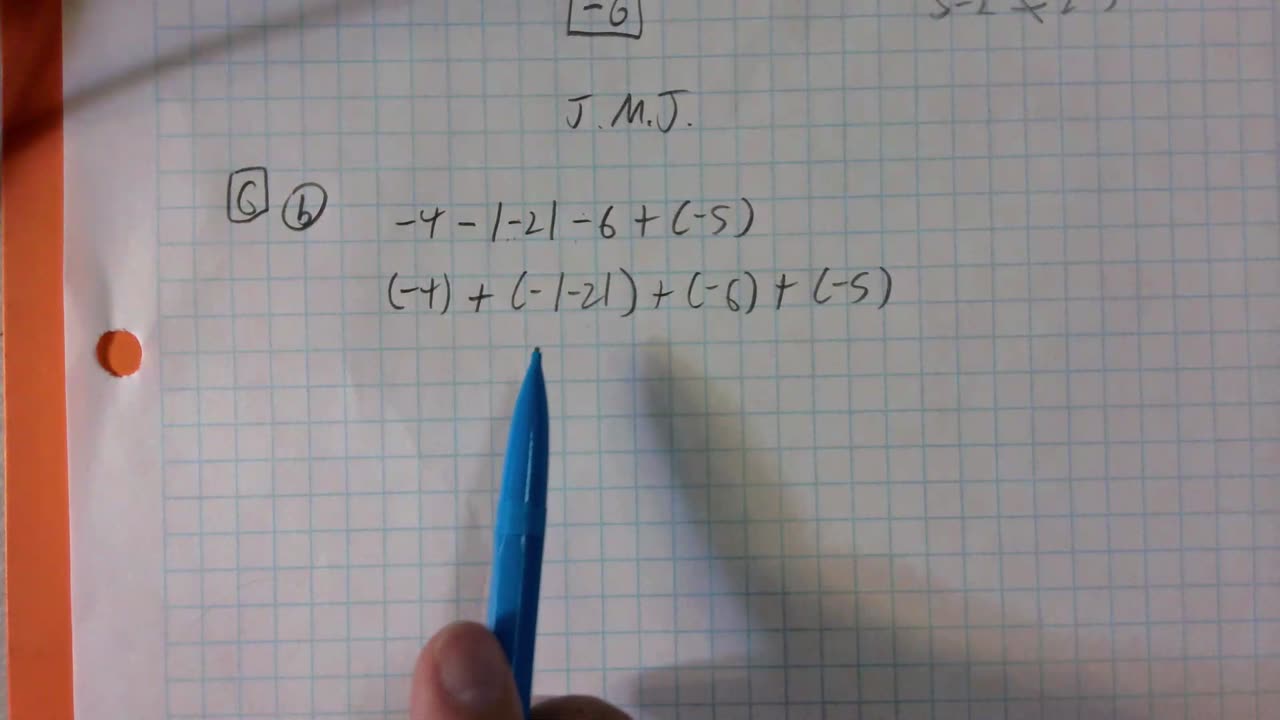 -6
J.M.J.
6 b -4 - |-2| - 6 + (-5)
(-4) + (-|-2|) + (-6) + (-5)